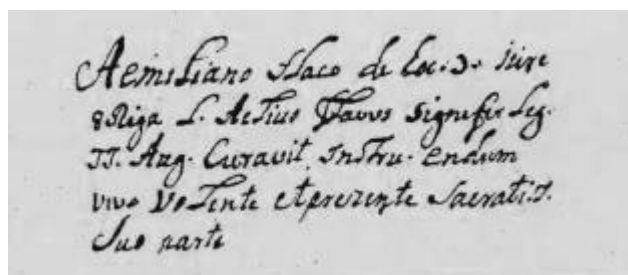 Aemiliano Flaco de Loc. D. 
Riga L. Aelius Flavus Signefir Leg.
II. Aug. Curavit Instru. endum
vivo Volente et prezente Sacrati. I.
Suo parte